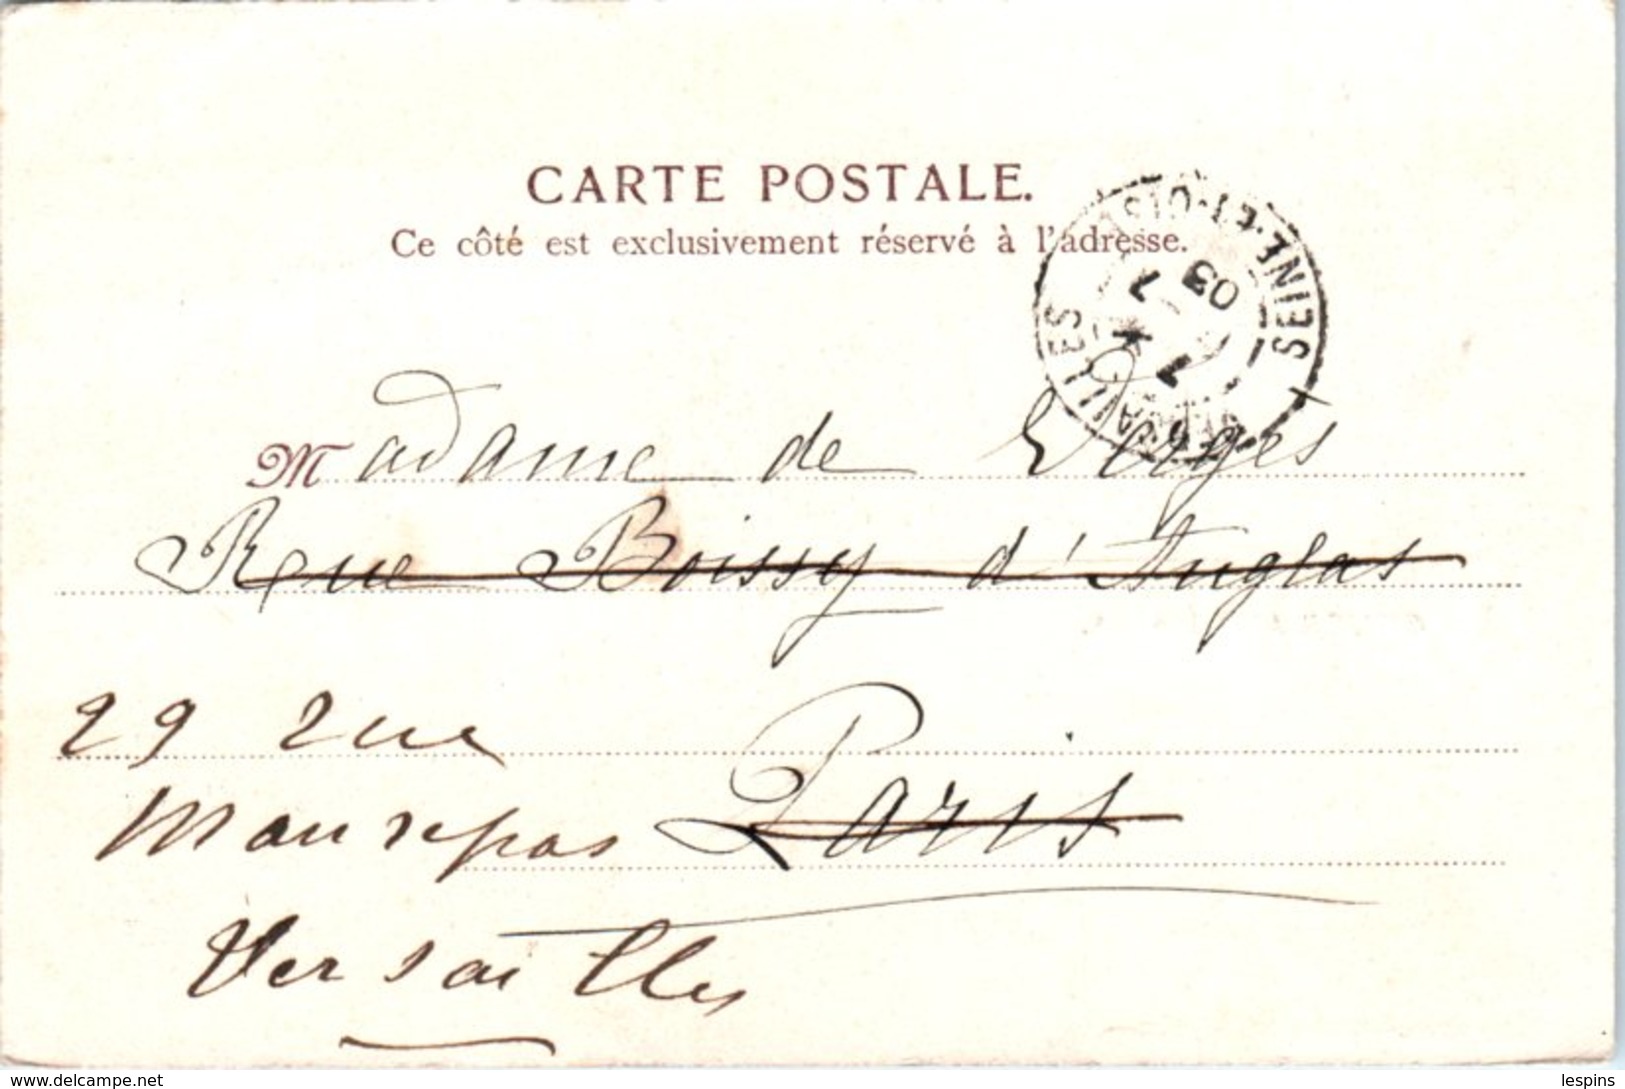 CARTE POSTALE.
Ce côté est exclusivement réservé à l'adresse.
VERSAILLES SEINE-ET-OISE
7
03
Madame de Vorges
Rue Boissy d'Anglas
29 rue
Maurepas Paris
Versailles
www.delcampe.net
lespins